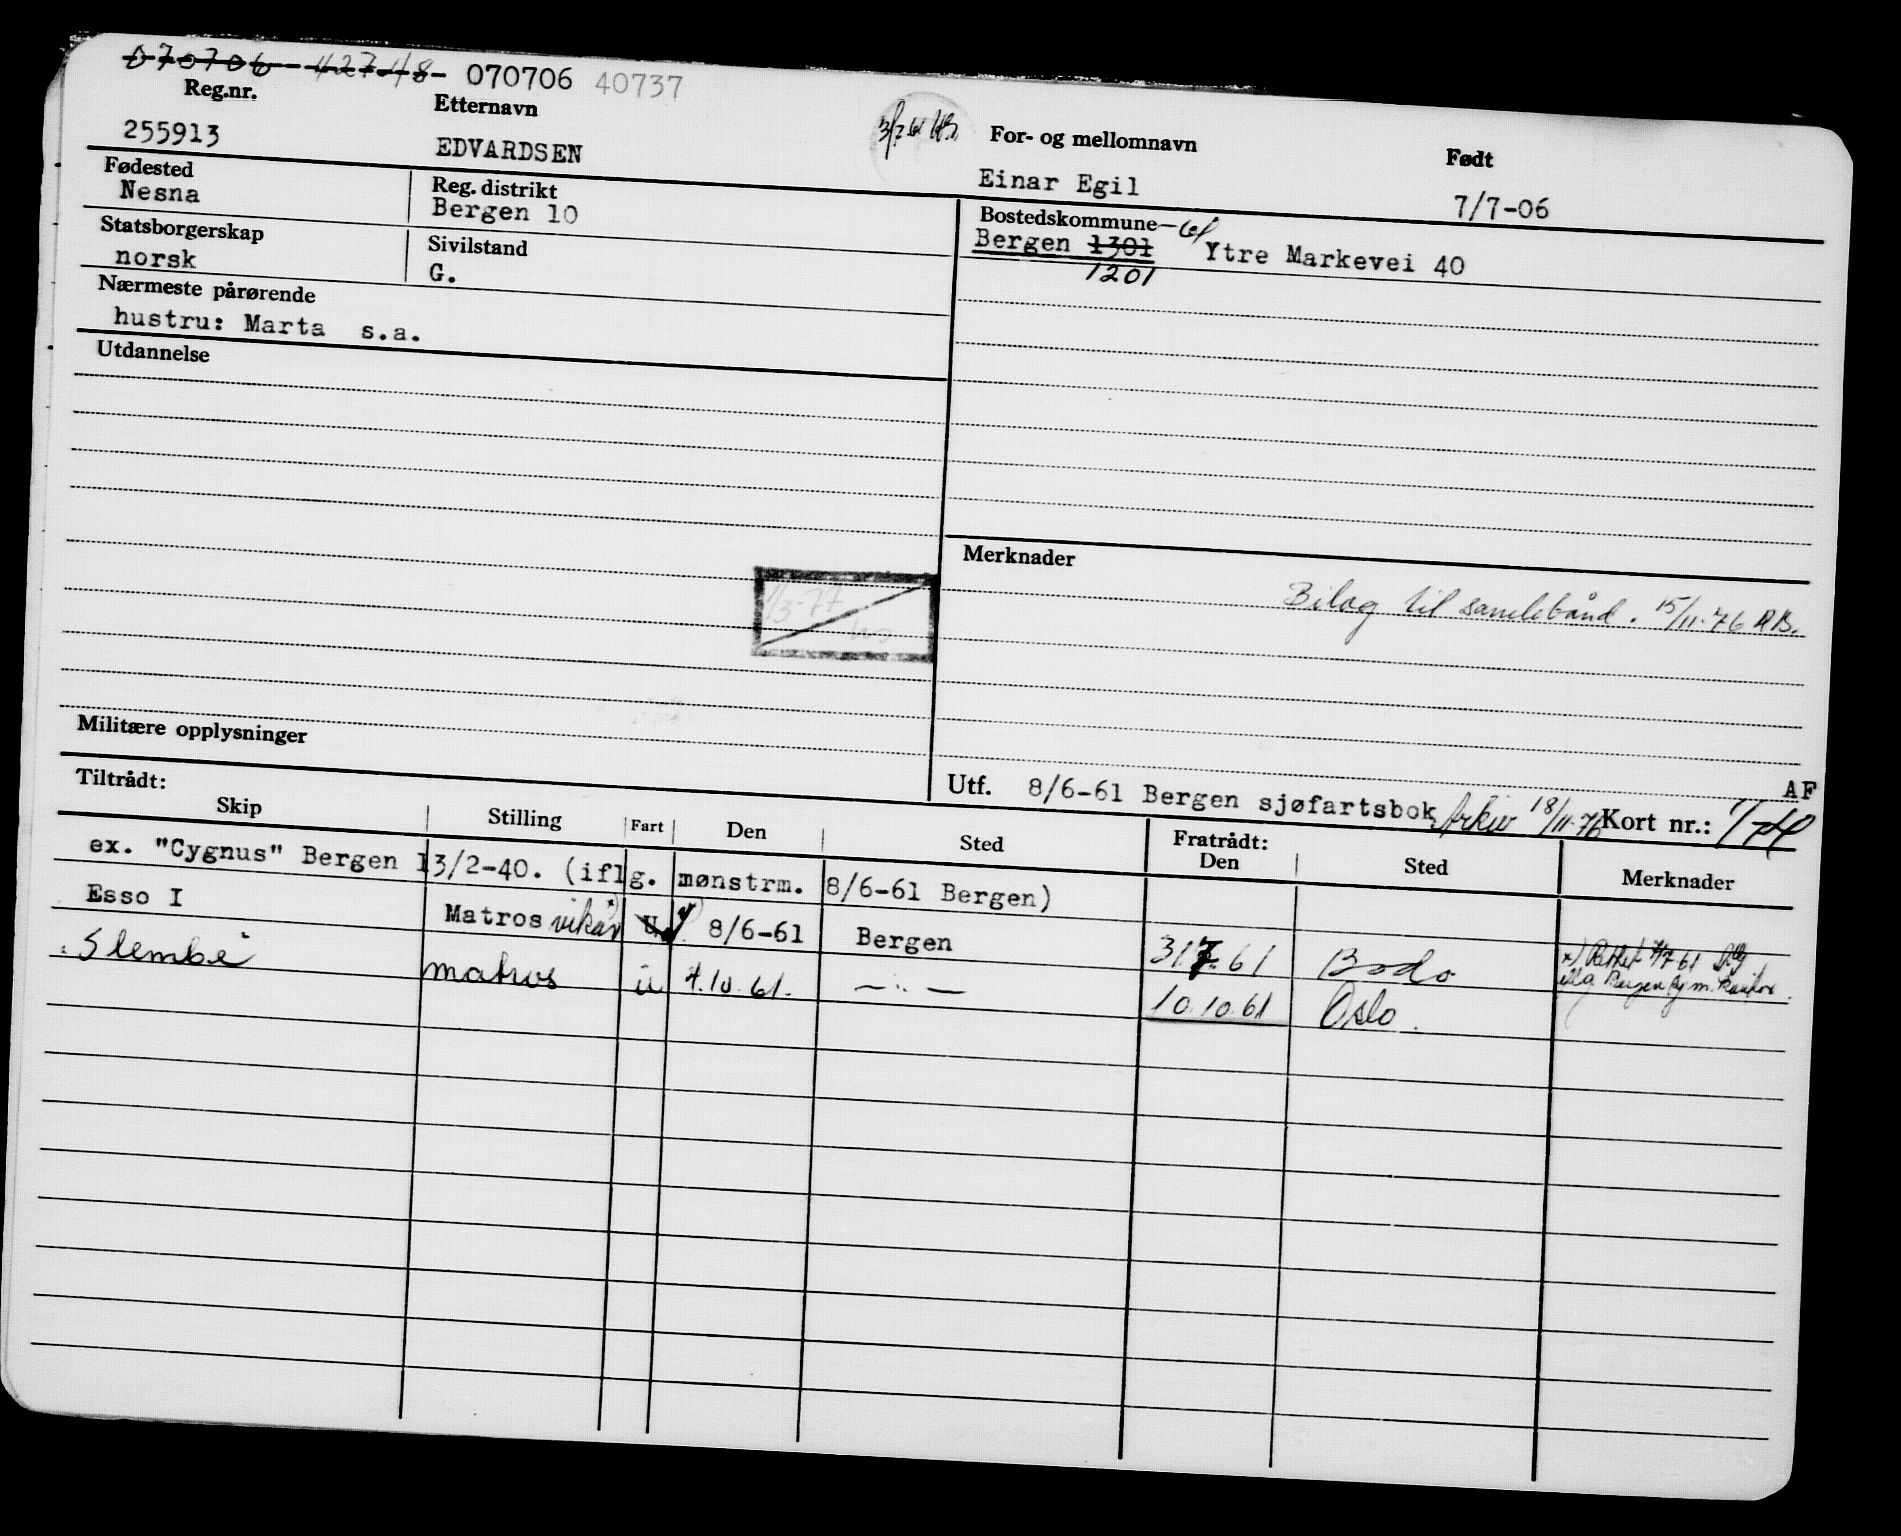 070706 42748 070706 40737
Reg.nr. Etternavn For- og mellomnavn Født
255913 EDVARDSEN Einar Egil 7/7-06
Fødested Reg. distrikt Bostedskommune
Nesna Bergen 10 Bergen 1301 Ytre Markevei 40
1201
Statsborgerskap Sivilstand
norsk G.
Nærmeste pårørende
hustru: Marta s.a.
Utdannelse
Merknader
Bilag til samlebånd. 15/11-76
1/3-77
Militære opplysninger
AF
Utf. 8/6-61 Bergen sjøfartsbok Arkiv 18/11-76 Kort nr.: 1/
Tiltrådt: Fratrådt:
Skip Stilling Fart Den Sted Den Sted Merknader
ex. "Cygnus" Bergen 13/2-40. (iflg. mønstrm. 8/6-61 Bergen)
Esso I Matros vikar U 8/6-61 Bergen 31.7.61 Bodo
Slembe matros u 4.10.61. —"— 10.10.61 Oslo.